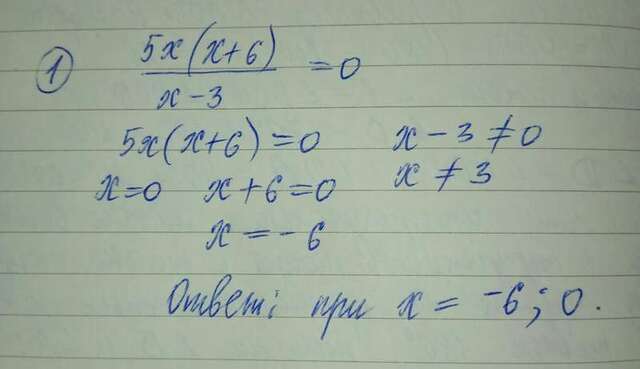 ① 5x(x+6)/x-3 = 0
5x(x+6)=0 x-3≠0
x=0 x+6=0 x≠3
x=-6
Ответ: при x= -6; 0.